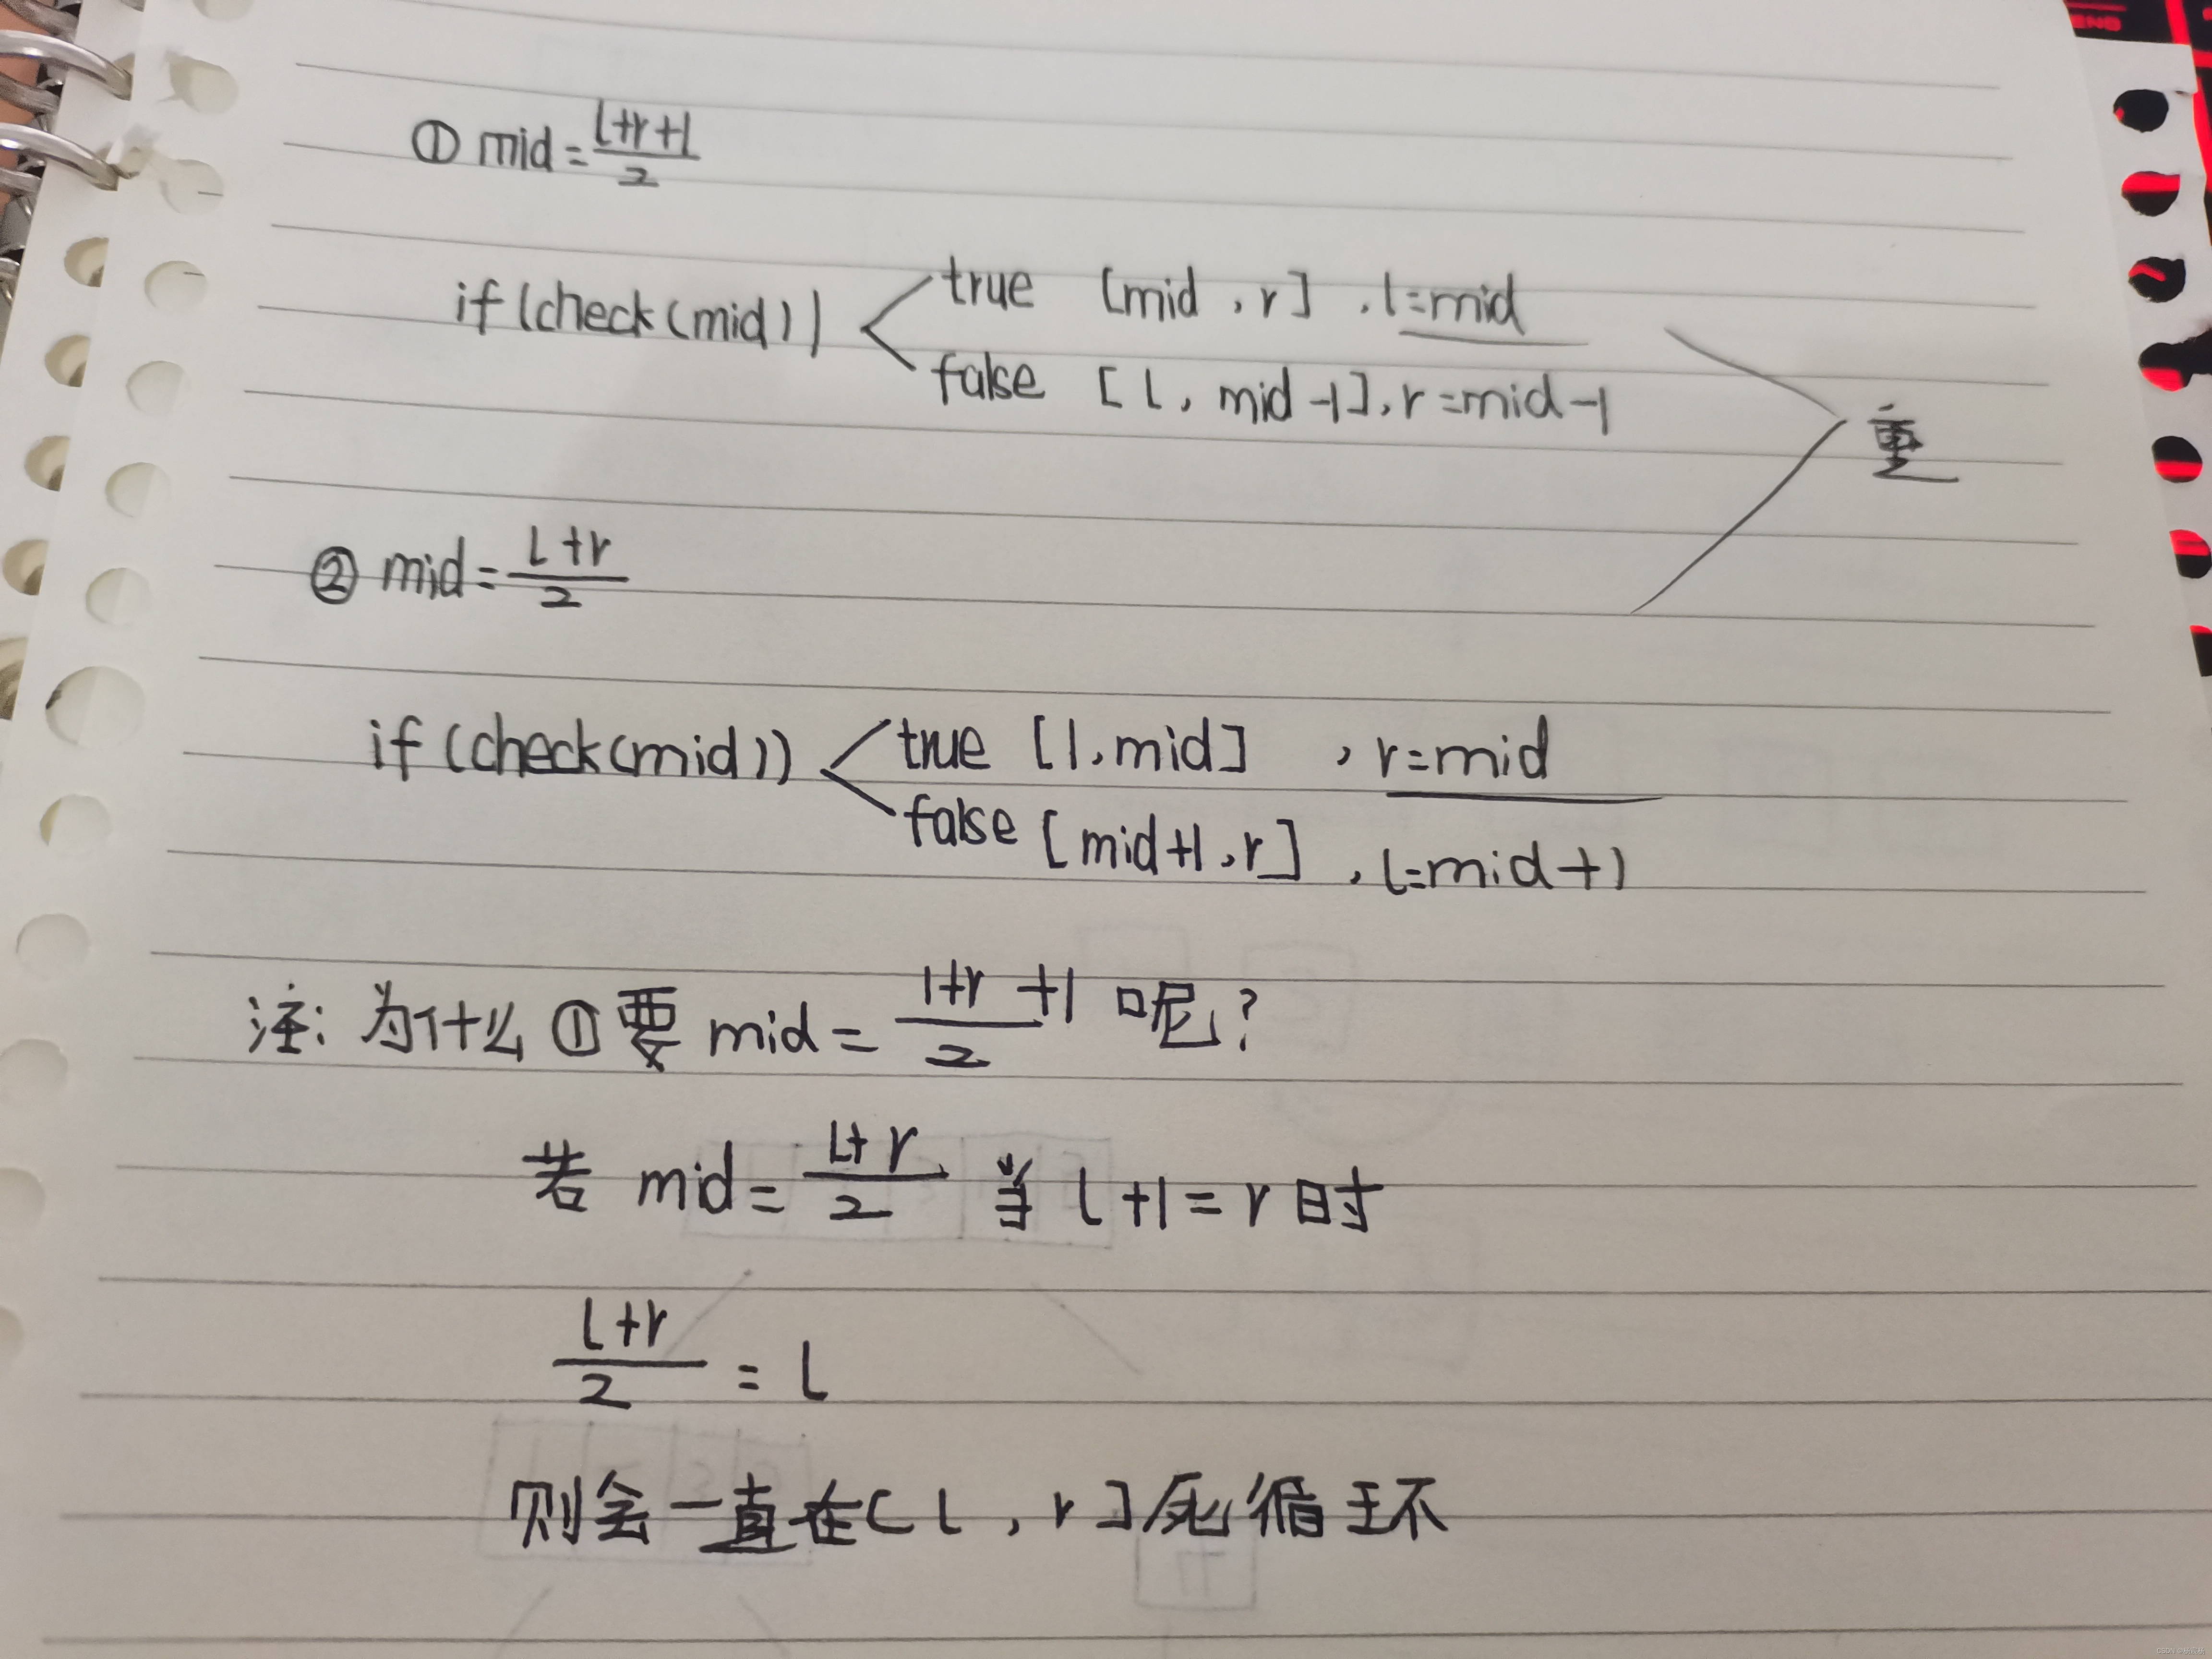 ① mid = (l+r+1)/2
if (check(mid)) true [mid, r], l=mid
false [l, mid-1], r=mid-1
重
② mid = (l+r)/2
if (check(mid)) true [l, mid], r=mid
false [mid+1, r], l=mid+1
注: 为什么①要 mid = (l+r+1)/2 呢?
若 mid = (l+r)/2 当 l+1=r 时
(l+r)/2 = l
则会一直在[l, r]死循环